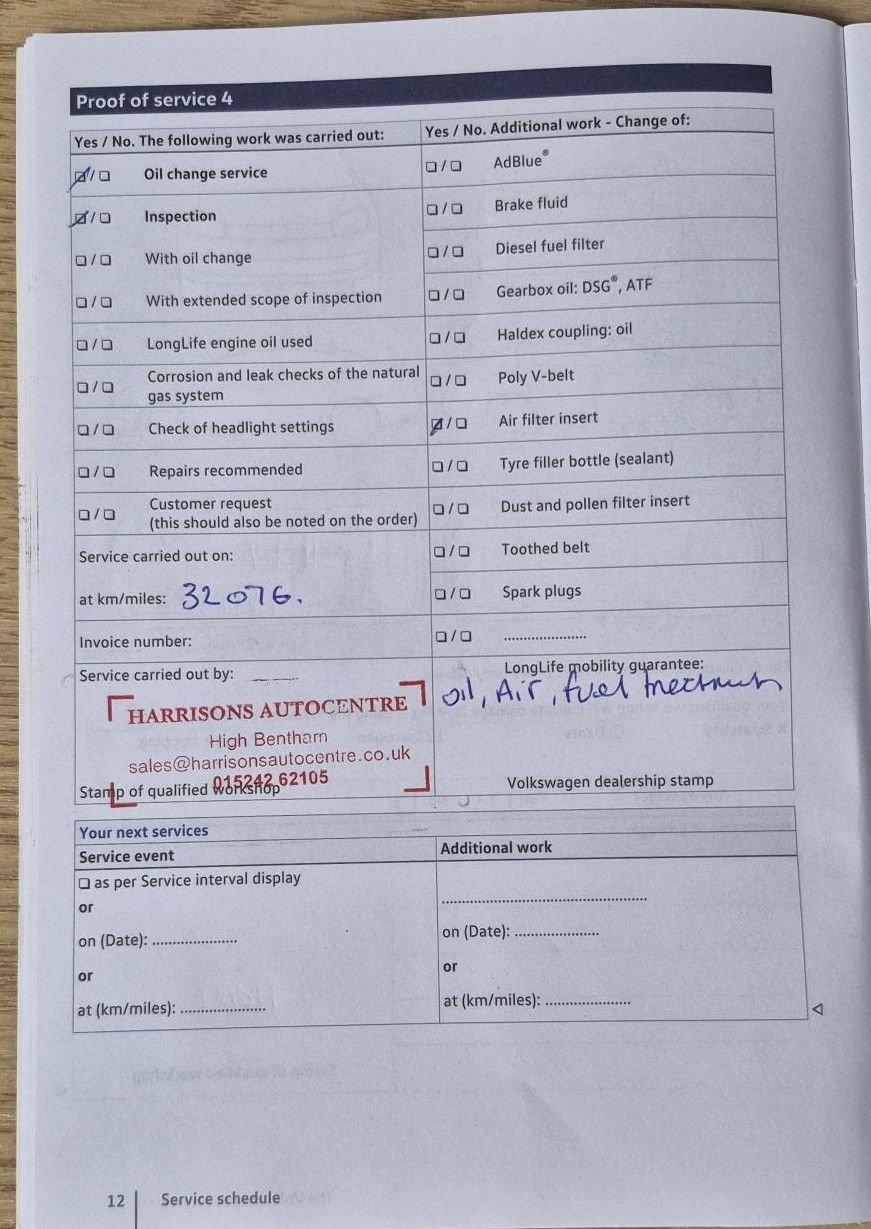 Proof of service 4
Yes / No. The following work was carried out:
☑/☐ Oil change service
☑/☐ Inspection
☐/☐ With oil change
☐/☐ With extended scope of inspection
☐/☐ LongLife engine oil used
☐/☐ Corrosion and leak checks of the natural
gas system
☐/☐ Check of headlight settings
☐/☐ Repairs recommended
☐/☐ Customer request
(this should also be noted on the order)
Service carried out on:
at km/miles: 32076.
Invoice number:
Service carried out by:
HARRISONS AUTOCENTRE
High Bentham
sales@harrisonsautocentre.co.uk
015242 62105
Stamp of qualified workshop
Yes / No. Additional work - Change of:
☐/☐ AdBlue®
☐/☐ Brake fluid
☐/☐ Diesel fuel filter
☐/☐ Gearbox oil: DSG®, ATF
☐/☐ Haldex coupling: oil
☐/☐ Poly V-belt
☑/☐ Air filter insert
☐/☐ Tyre filler bottle (sealant)
☐/☐ Dust and pollen filter insert
☐/☐ Toothed belt
☐/☐ Spark plugs
☐/☐ ......................
LongLife mobility guarantee:
oil, Air, fuel
Volkswagen dealership stamp
Your next services
Service event
☐ as per Service interval display
or
on (Date): ......................
or
at (km/miles): ......................
Additional work
......................................................
on (Date): ......................
or
at (km/miles): ......................
12 Service schedule